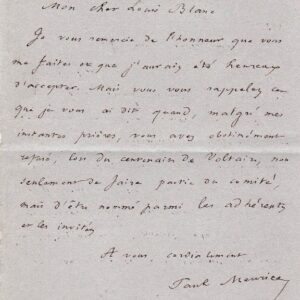 Mon cher Louis Blanc
Je vous remercie de l'honneur que vous
me faites et que j'aurais été heureux
d'accepter. Mais vous vous rappelez ce
que je vous ai dit quand, malgré mes
instantes prières, vous avez obstinément
refusé, lors du centenaire de Voltaire, non
seulement de faire partie du comité
mais d'être nommé parmi les adhérents
et les invités.
A vous cordialement
Paul Meurice